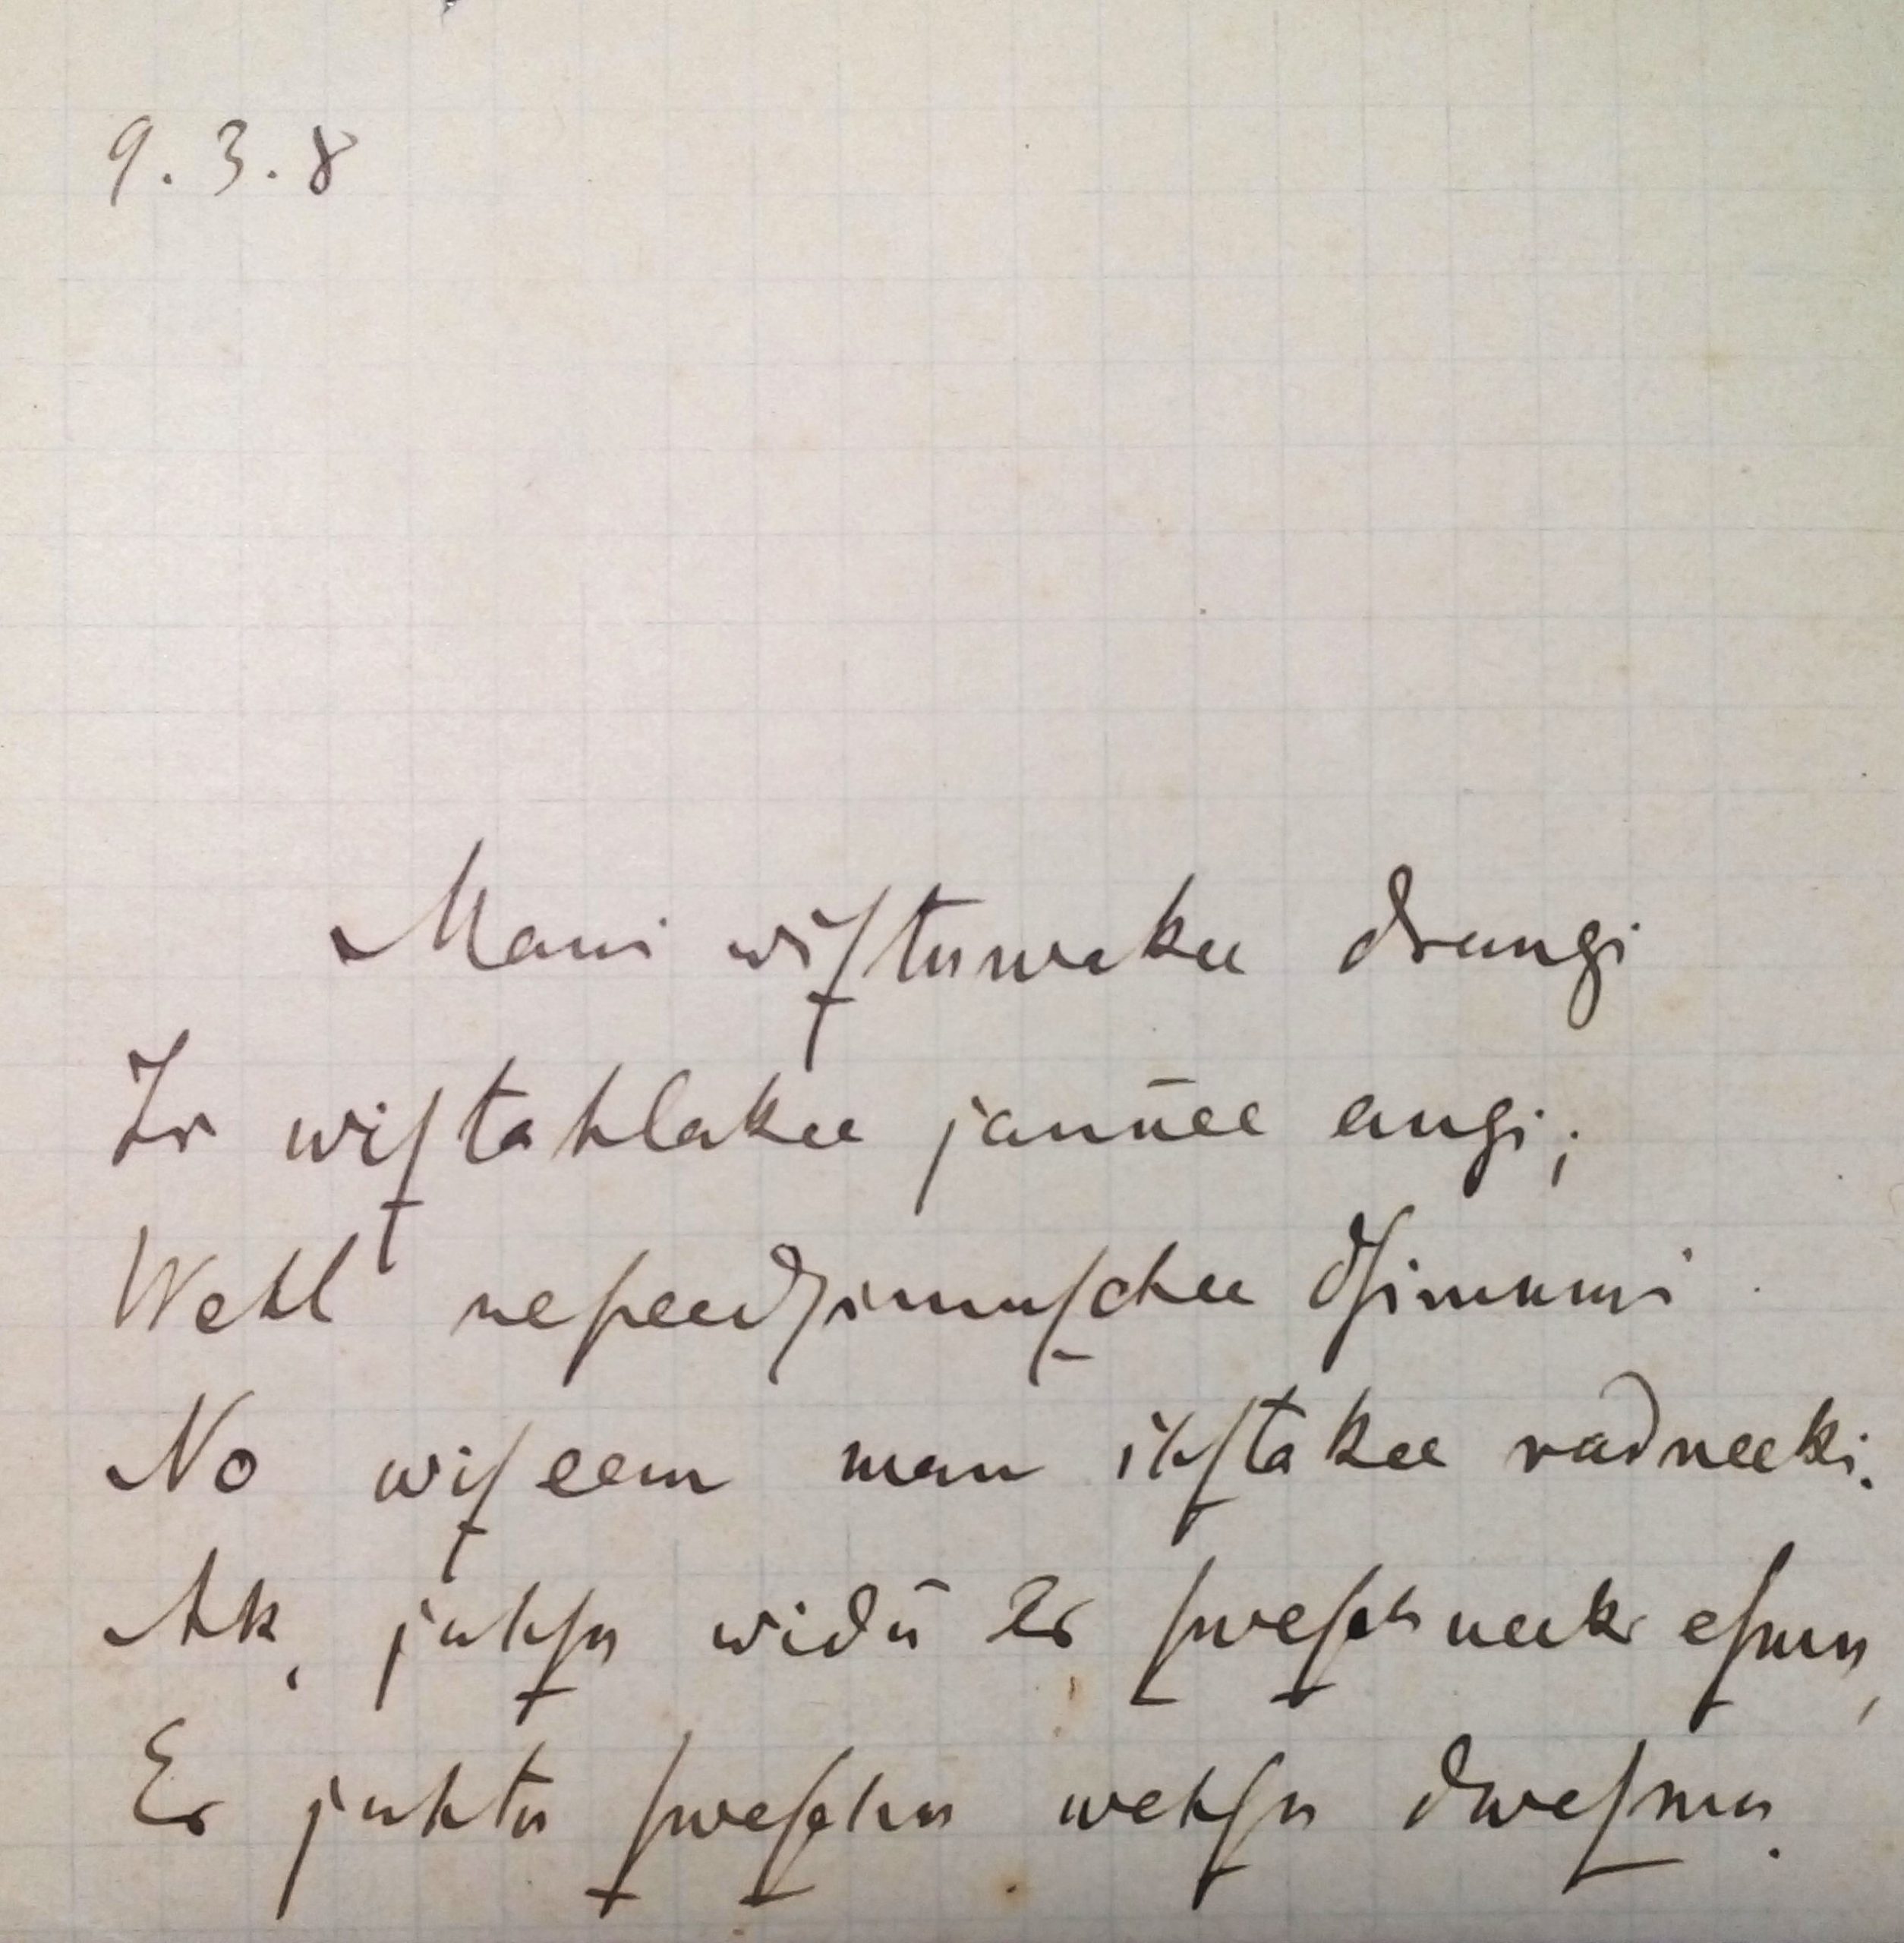 9. 3. 8
Mani wiſtuwakee draugi
Ir wiſtahlakee jaunee augi;
Wehl nepeedſimuſchee dſimumi
No wiſeem man ihſtakee radneeki.
Ak, juhſu widū es ſweſchneeks eſmu,
Es juhtu ſweſchu wehſu dweſmu.